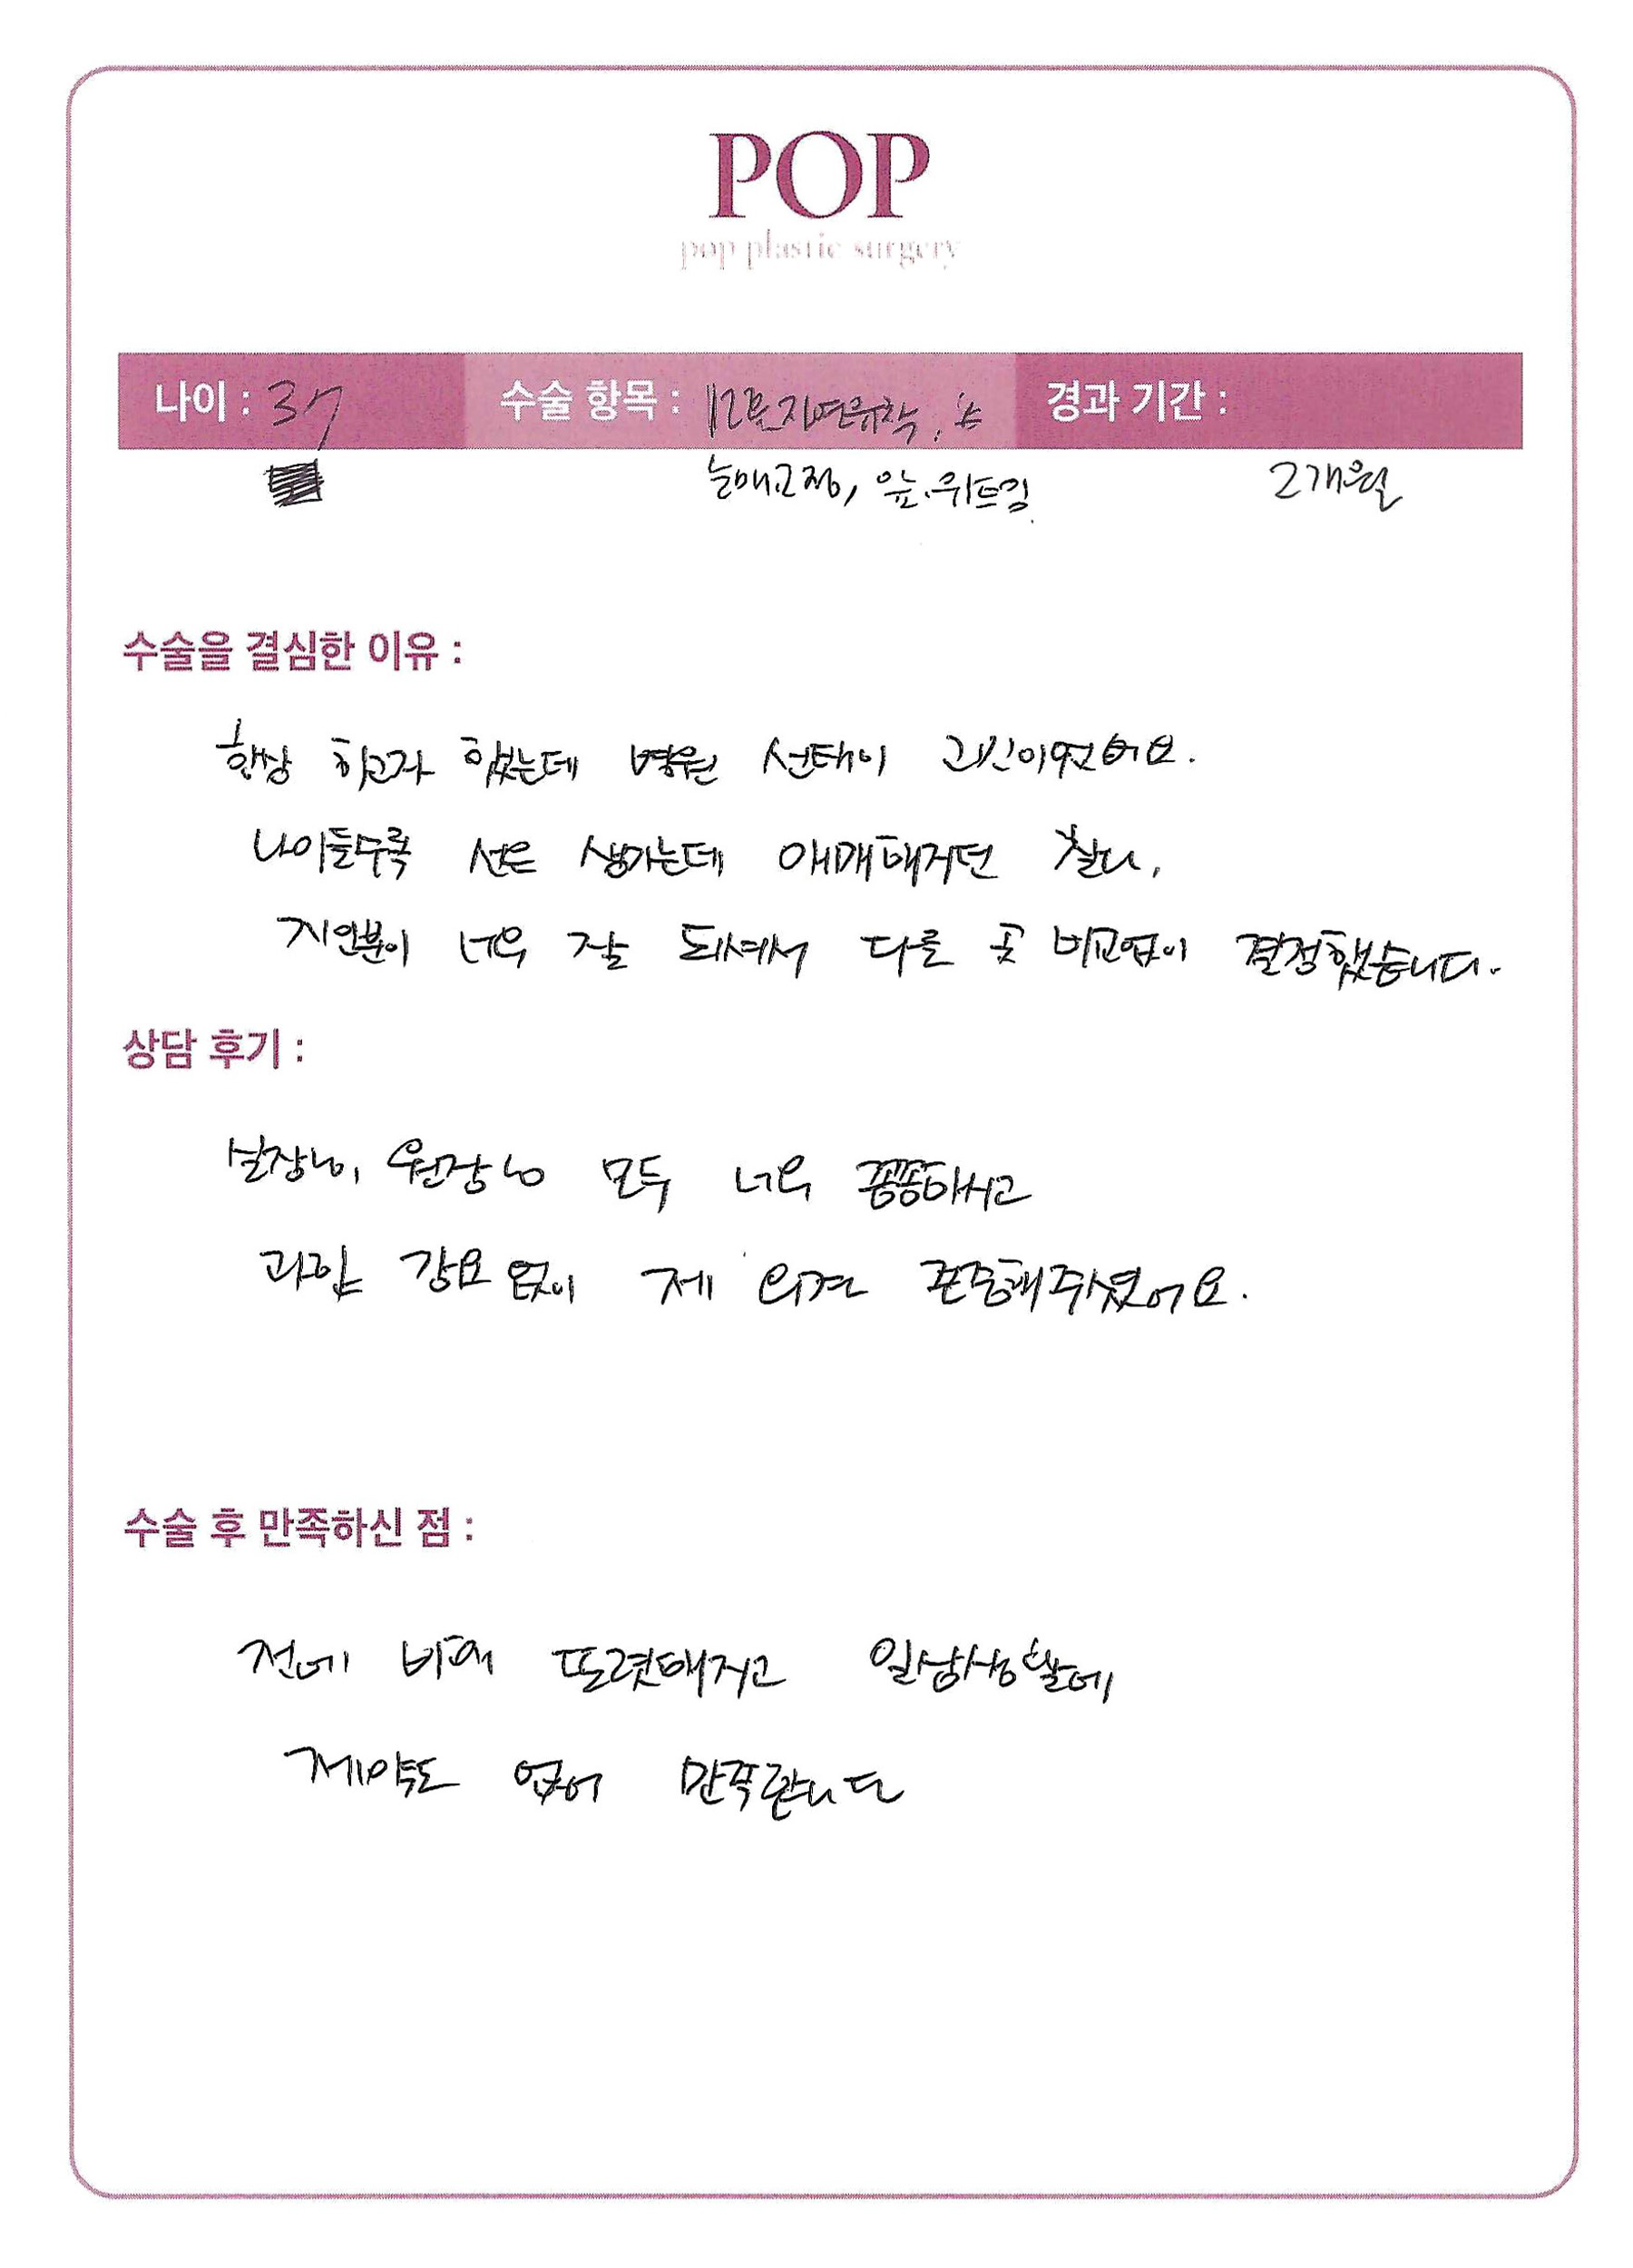 POP
pop plastic surgery
나이 : 37
수술 항목 : 12몰자연유착,
경과 기간 :
눈매교정, 앞.뒤트임
2개월
수술을 결심한 이유 :
항상 하고자 했는데 병원 선택이 고민이었어요.
나이들수록 선은 생기는데 애매해지던 찰나,
지인분이 너무 잘 되셔서 다른 곳 비교없이 결정했습니다.
상담 후기 :
실장님, 원장님 모두 너무 꼼꼼하시고
과한 강요 없이 제 의견 존중해주셨어요.
수술 후 만족하신 점 :
전에 비해 또렷해지고 일상생활에
제약도 없어 만족합니다